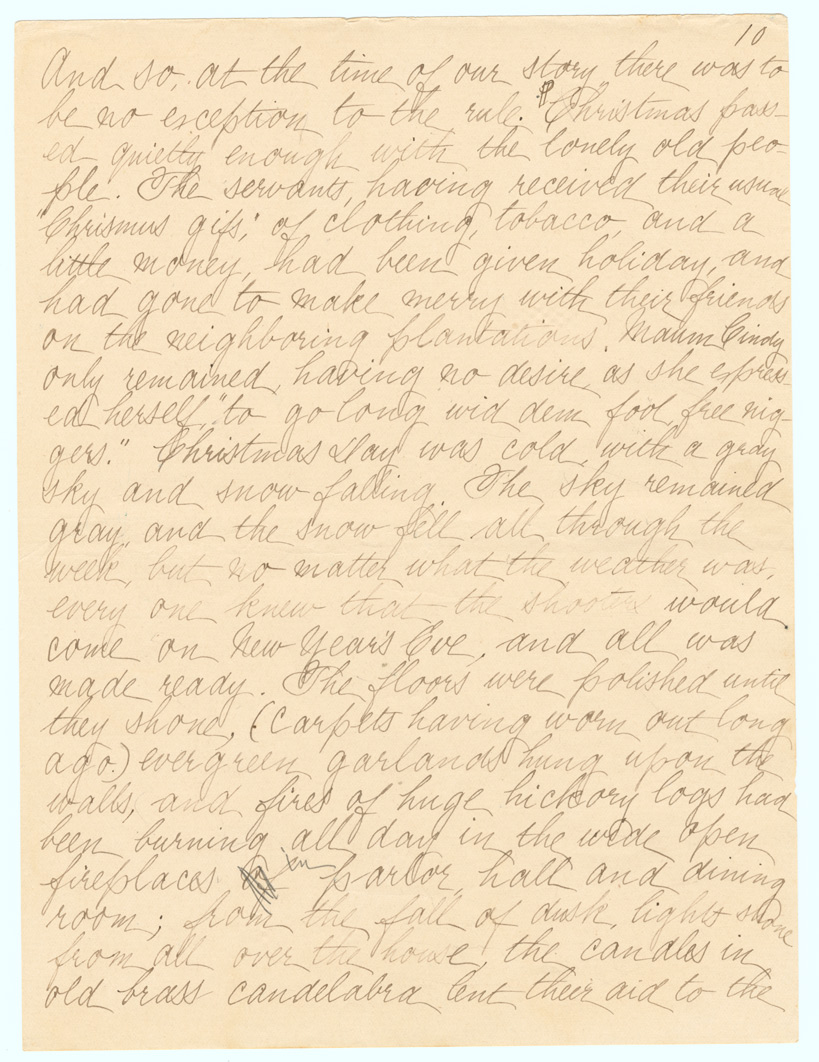 10
And so, at the time of our story, there was to
be no exception to the rule. Christmas pass-
ed quietly enough with the lonely old peo-
ple. The servants, having received their usual
"Chrismus gifs," of clothing, tobacco, and a
little money, had been given holiday, and
had gone to make merry with their friends
on the neighboring plantations. Maum Cindy
only remained, having no desire, as she express-
ed herself, "to go long wid dem fool, free nig-
gers." Christmas Day was cold, with a gray
sky and snow falling. The sky remained
gray, and the snow fell all through the
week, but no matter what the weather was,
every one knew that the shooters would
come on New Year's Eve, and all was
made ready. The floors were polished until
they shone, (carpets having worn out long
ago.) evergreen garlands hung upon the
walls, and fires of huge hickory logs had
been burning all day in the wide open
fireplaces in parlor, hall and dining
room; from the fall of dusk, lights shone
from all over the house, the candles in
old brass candelabra lent their aid to the